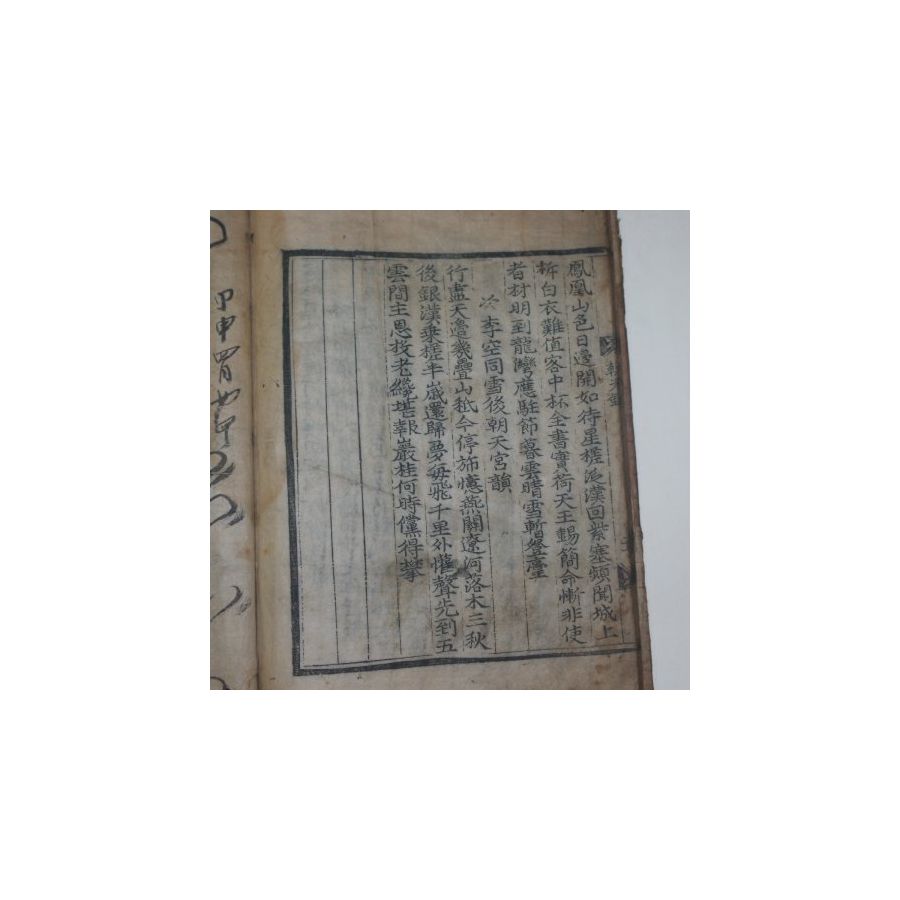 鳳凰山色日邊開如待星槎泛漢回紫塞頻聞城上
柝白衣難值客中杯全書實荷天王錫簡命慚非使
者材明到龍灣應駐節暮雲晴雪暫登臺
次李空同雪後朝天宮韻
行盡天邊幾疊山秪今停斾憶燕關遼河落木三秋
後銀漢乗槎半歲還歸夢每飛千里外懽聲先到五
雲間主恩投老纔堪報巖桂何時儻得攀
甲申